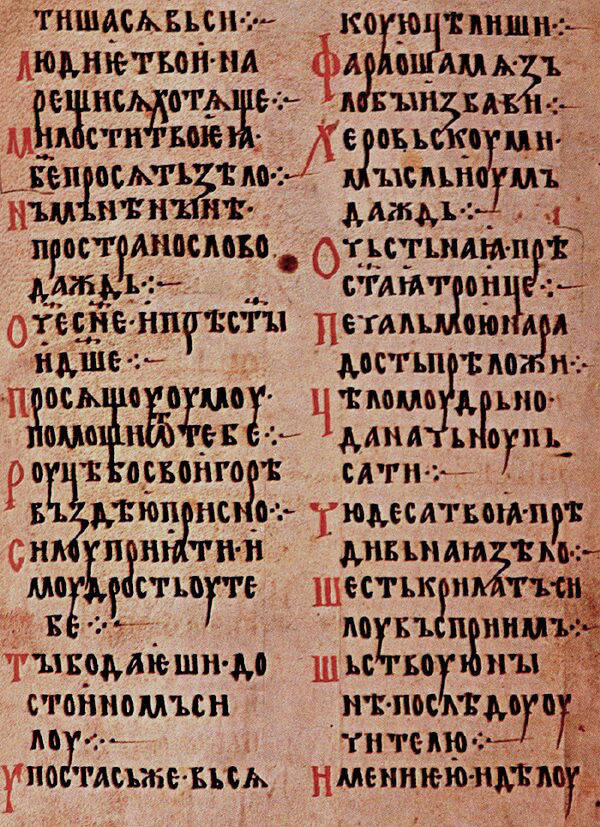 тишасѧвьси ·:·
Людиѥтвои·на
рещисѧхотѧще ·:·
Милоститвоѥꙗ·
б҃епросѧтьзѣло ·:·
Нъмънѣнынѣ·
пространослово
даждь ·:·
Оч҃ес҃не·ипрѣст҃ы
ид҃ше ·:·
Просѧщоуоумоу·
помощиѿтебе ·:·
Роуцѣбосвоигорѣ
въздѣюприсно ·:·
Силоуприꙗти·и
моудростьоуте
бе ·:·
Тыбодаѥши·до
стоиномъси
лоу ·:·
Упостасьже·вьсѧ
коуюцѣлиши ·:·
Фараошамѧзъ
лобыизбави ·:·
Херовьскоуми·
мысльиоумъ
даждь ·:·
Очьстьнаꙗ·прѣ
с҃таꙗтроице ·:·
Печальмоюнара
достьпрѣложи ·:·
Цѣломоудрьно·
данатьноупь
сати ·:·
Чюдесатвоꙗ·прѣ
дивьнаꙗзѣло ·:·
Шестькрилатъси
лоувъсприимъ ·:·
Шьствоуюны
нѣ·послѣдоуоу
чителю ·:·
Имениѥю·идѣлоу